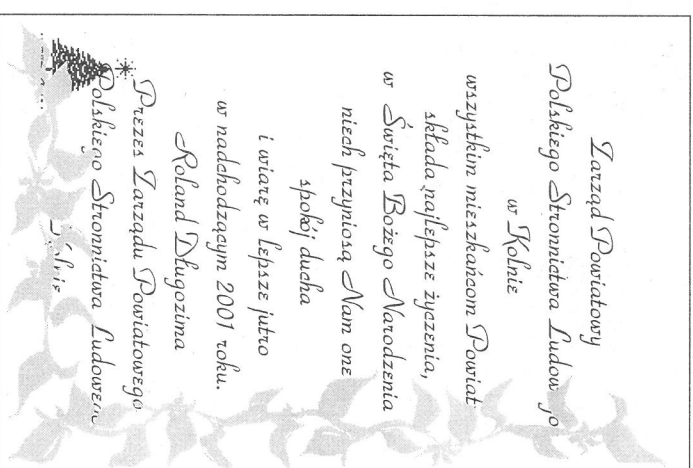 Zarząd Powiatowy
Polskiego Stronnictwa Ludow go
w Kolnie
wszystkim mieszkańcom Powiat
składa najlepsze życzenia,
w Święta Bożego Narodzenia
niech przyniosą Nam one
spokój ducha
i wiarę w lepsze jutro
w nadchodzącym 2001 roku.
Roland Długozima
Prezes Zarządu Powiatowego
Polskiego Stronnictwa Ludowego